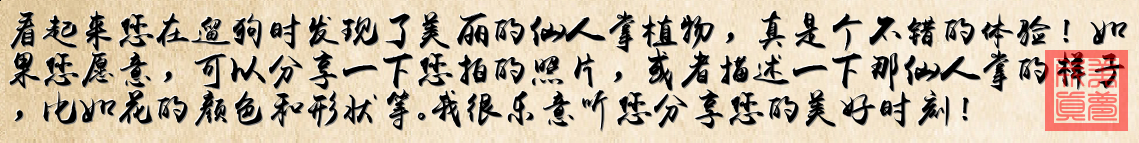 看起来您在遛狗时发现了美丽的仙人掌植物，真是个不错的体验！如
果您愿意，可以分享一下您拍的照片，或者描述一下那仙人掌的样子
，比如花的颜色和形状等。我很乐意听您分享您的美好时刻！